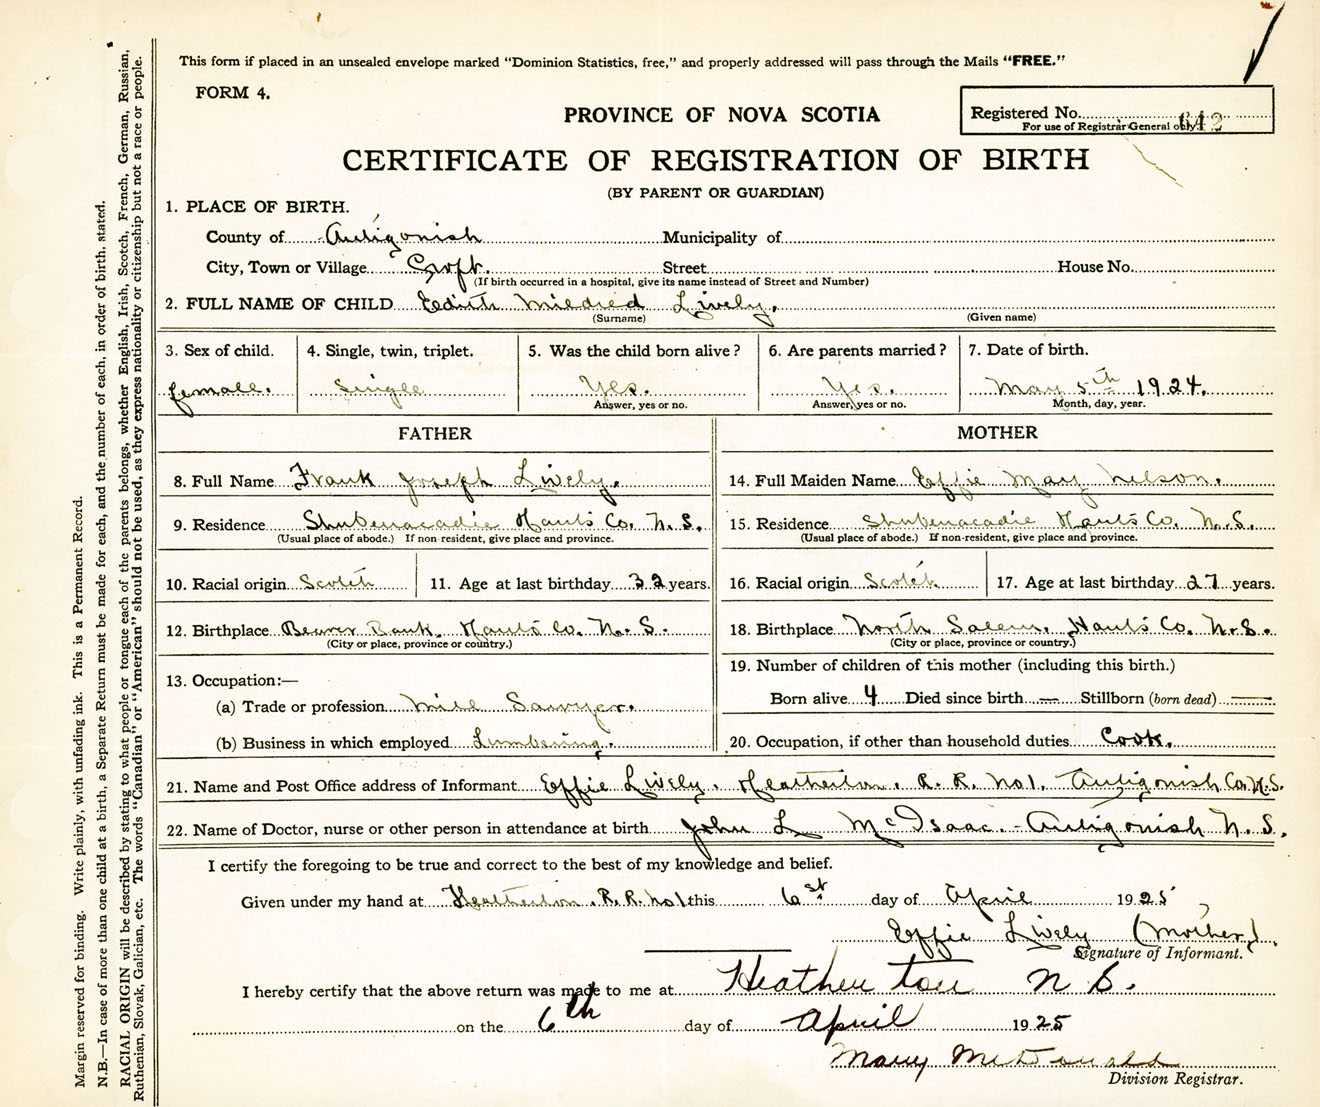 This form if placed in an unsealed envelope marked "Dominion Statistics, free," and properly addressed will pass through the Mails "FREE."
FORM 4.
PROVINCE OF NOVA SCOTIA
Registered No. 642
For use of Registrar General only.
CERTIFICATE OF REGISTRATION OF BIRTH
(BY PARENT OR GUARDIAN)
1. PLACE OF BIRTH.
County of Antigonish Municipality of
City, Town or Village Croft. Street House No.
(If birth occurred in a hospital, give its name instead of Street and Number)
2. FULL NAME OF CHILD Edith Mildred Lively.
(Surname) (Given name)
3. Sex of child. 4. Single, twin, triplet. 5. Was the child born alive? 6. Are parents married? 7. Date of birth.
female. Single Yes. Yes. May 5th 1924.
Answer, yes or no. Answer, yes or no. Month, day, year.
FATHER MOTHER
8. Full Name Frank Joseph Lively. 14. Full Maiden Name Effie May Nelson.
9. Residence Shubenacadie Hants Co. N.S. 15. Residence Shubenacadie Hants Co. N.S.
(Usual place of abode.) If non-resident, give place and province. (Usual place of abode.) If non-resident, give place and province.
10. Racial origin Scotch 11. Age at last birthday 32 years. 16. Racial origin Scotch 17. Age at last birthday 27 years.
12. Birthplace Beaver Bank. Hants Co. N.S. 18. Birthplace North Salem, Hants Co. N.S.
(City or place, province or country.) (City or place, province or country.)
13. Occupation:— 19. Number of children of this mother (including this birth.)
(a) Trade or profession Mill Sawyer. Born alive 4 Died since birth — Stillborn (born dead) —
(b) Business in which employed Lumbering. 20. Occupation, if other than household duties Cook.
21. Name and Post Office address of Informant Effie Lively. Heatherton. R.R. No 1. Antigonish Co. N.S.
22. Name of Doctor, nurse or other person in attendance at birth John L McIsaac. - Antigonish N.S.
I certify the foregoing to be true and correct to the best of my knowledge and belief.
Given under my hand at Heatherton. R.R. No 1 this 6st day of April 1925
Effie Lively (Mother).
Signature of Informant.
I hereby certify that the above return was made to me at Heatherton N S.
on the 6th day of April 1925
Mary McDonald
Division Registrar.
Margin reserved for binding. Write plainly, with unfading ink. This is a Permanent Record.
N.B.—In case of more than one child at a birth, a Separate Return must be made for each, and the number of each, in order of birth, stated.
RACIAL ORIGIN will be described by stating to what people or tongue each of the parents belongs, whether English, Irish, Scotch, French, German, Russian,
Ruthenian, Slovak, Galician, etc. The words "Canadian" or "American" should not be used, as they express nationality or citizenship but not a race or people.